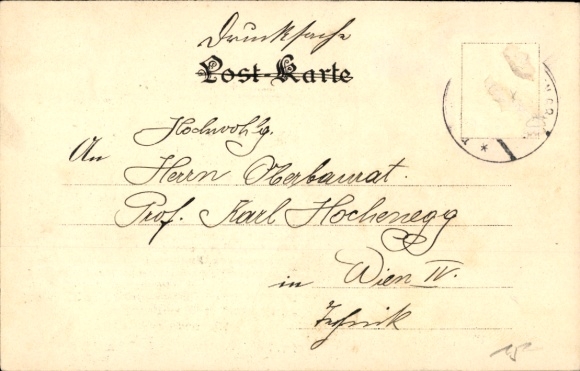 Drucksache
Post-Karte
Hochwohlg.
An
Herrn Oberbaurat.
Prof. Karl Hochenegg
in Wien IV.
Technik
15